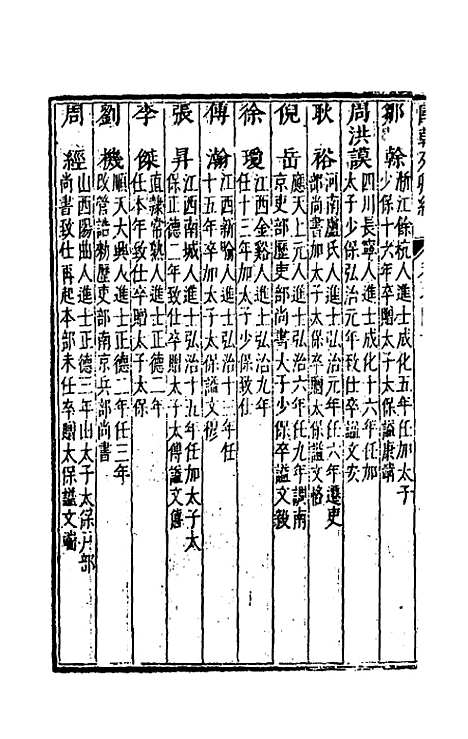 鄒幹 浙江餘杭人進士成化五年任加太子
少保十六年卒贈太子太保謚康靖
周洪謨 四川長寧人進士成化十六年任加
太子少保弘治元年致仕卒謚文安
耿裕 河南盧氏人進士弘治元年任六年遷吏
部尚書加太子太保卒贈太保謚文恪
倪岳 應天上元人進士弘治六年任九年調南
京吏部歷吏部尚書太子少保卒謚文毅
徐瓊 江西金谿人進士弘治九年
任十三年加太子少保致仕
傅瀚 江西新喻人進士弘治十三年任
十五年卒加太子太保謚文穆
張昇 江西南城人進士弘治十五年任加太子太
保正德二年致仕卒贈太子太傅謚文僖
李傑 直隸常熟人進士正德二年
任本年致仕卒贈太子太保
劉機 順天大興人進士正德二年任三年
改管誥勅歷吏部南京兵部尚書
周經 山西陽曲人進士正德三年由太子太保戶部
尚書致仕再起本部未任卒贈太保謚文端